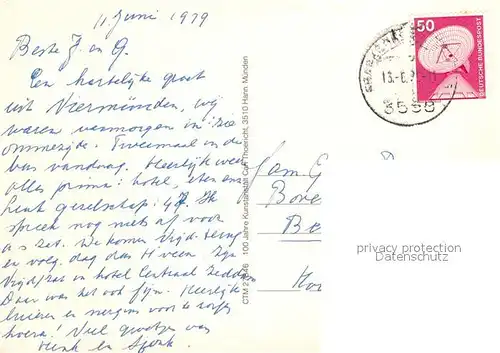 11 Juni 1979
Beste J. en G.
Een hartelijke groet
uit Viermünden, wij
waren vanmorgen in
ommezijde. Tweemaal in de
bus vandaag. Heerlijk weer
alles prima: hotel, eten enz
Leuk gezelschap: 47. Ik
spreek nog niets af voor
a.s zat. We komen Vrijd. terug
en volg. dag das H'veen.
Vrijd/zat in hotel Centraal
Daar was het ook fijn. Heerlijk
luieren en nergens voor te zorgen
hoera! Veel groetjes van
Henk en
Fam. G
Bove
Be
Hor
CTM 2 646 100 Jahre Kunstanstalt Carl Thoericht, 3510 Hann. Münden
50
DEUTSCHE BUNDESPOST
3558
privacy protection
Datenschutz